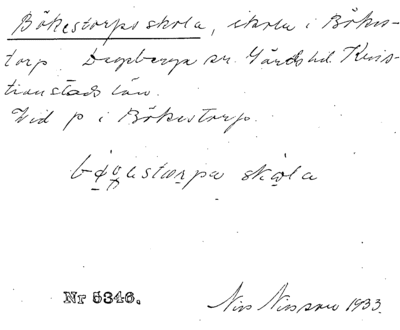 Bökestorps skola, skola i Bökes-
torp. Degeberga sn. Gärds hd. Kris-
tianstads län.
Vid p i Bökestorp.
skola
Nr 5346.
Nils Nilsson 1933.